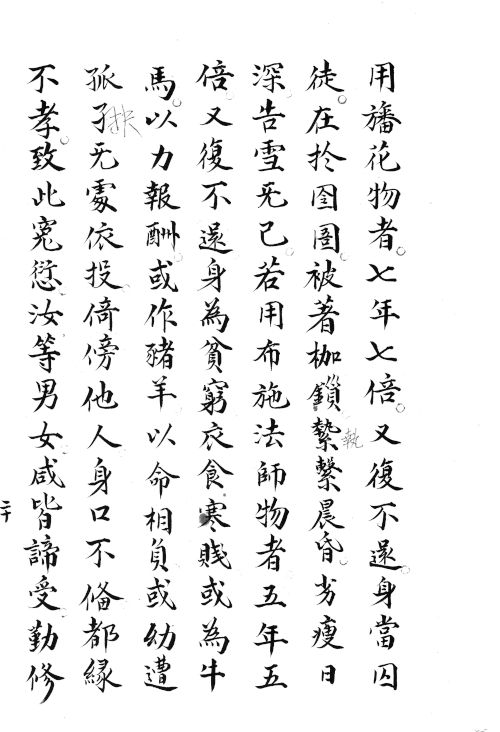 用旛花物者七年七倍又復不還身當囚
徒在扵圄圄被著枷鎖縶繫晨昏劣瘦日
深告雪旡已若用布施法師物者五年五
倍又復不還身為貧窮衣食寒賎或為牛
馬以力報酬或作豬羊以命相負或幼遭
孤孑旡䖏依投倚傍他人身口不俻都縁
不孝致此寃愆汝等男女咸皆諦受勤修
二十